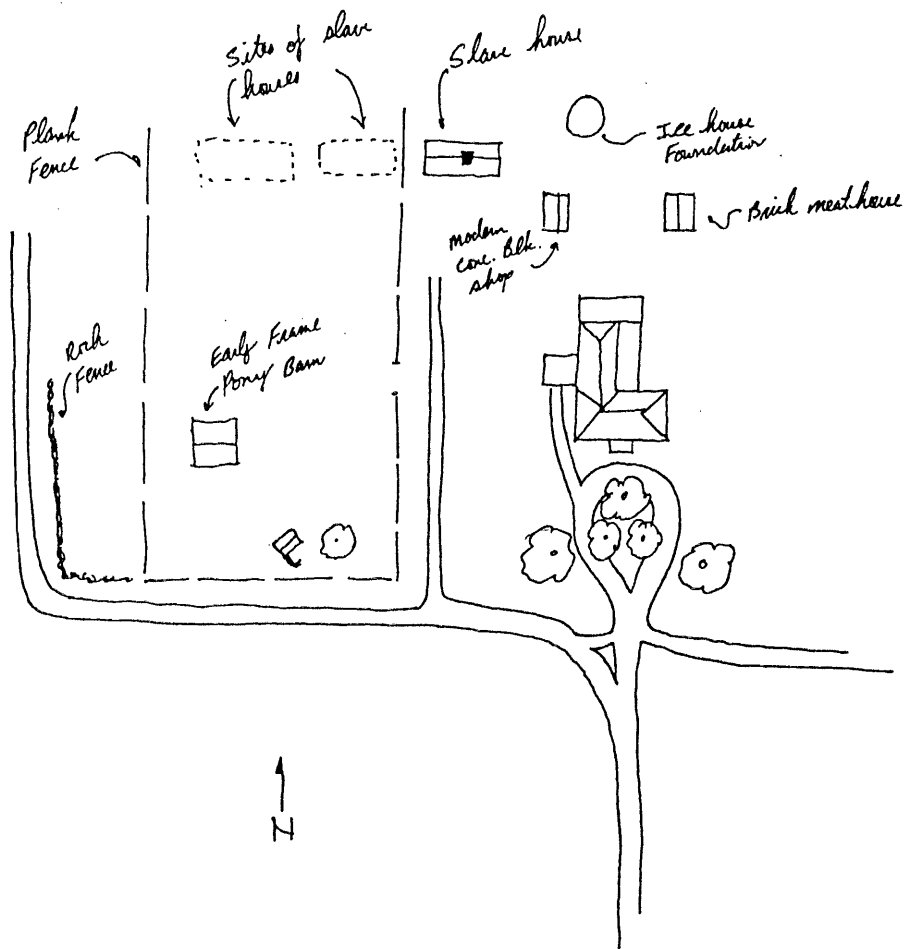 Sites of slave
houses
Slave house
Plank
Fence
Ice house
Foundation
Brick meathouse
Modern
Conc. Blk.
shop
Rock
Fence
Early Frame
Pony Barn
N